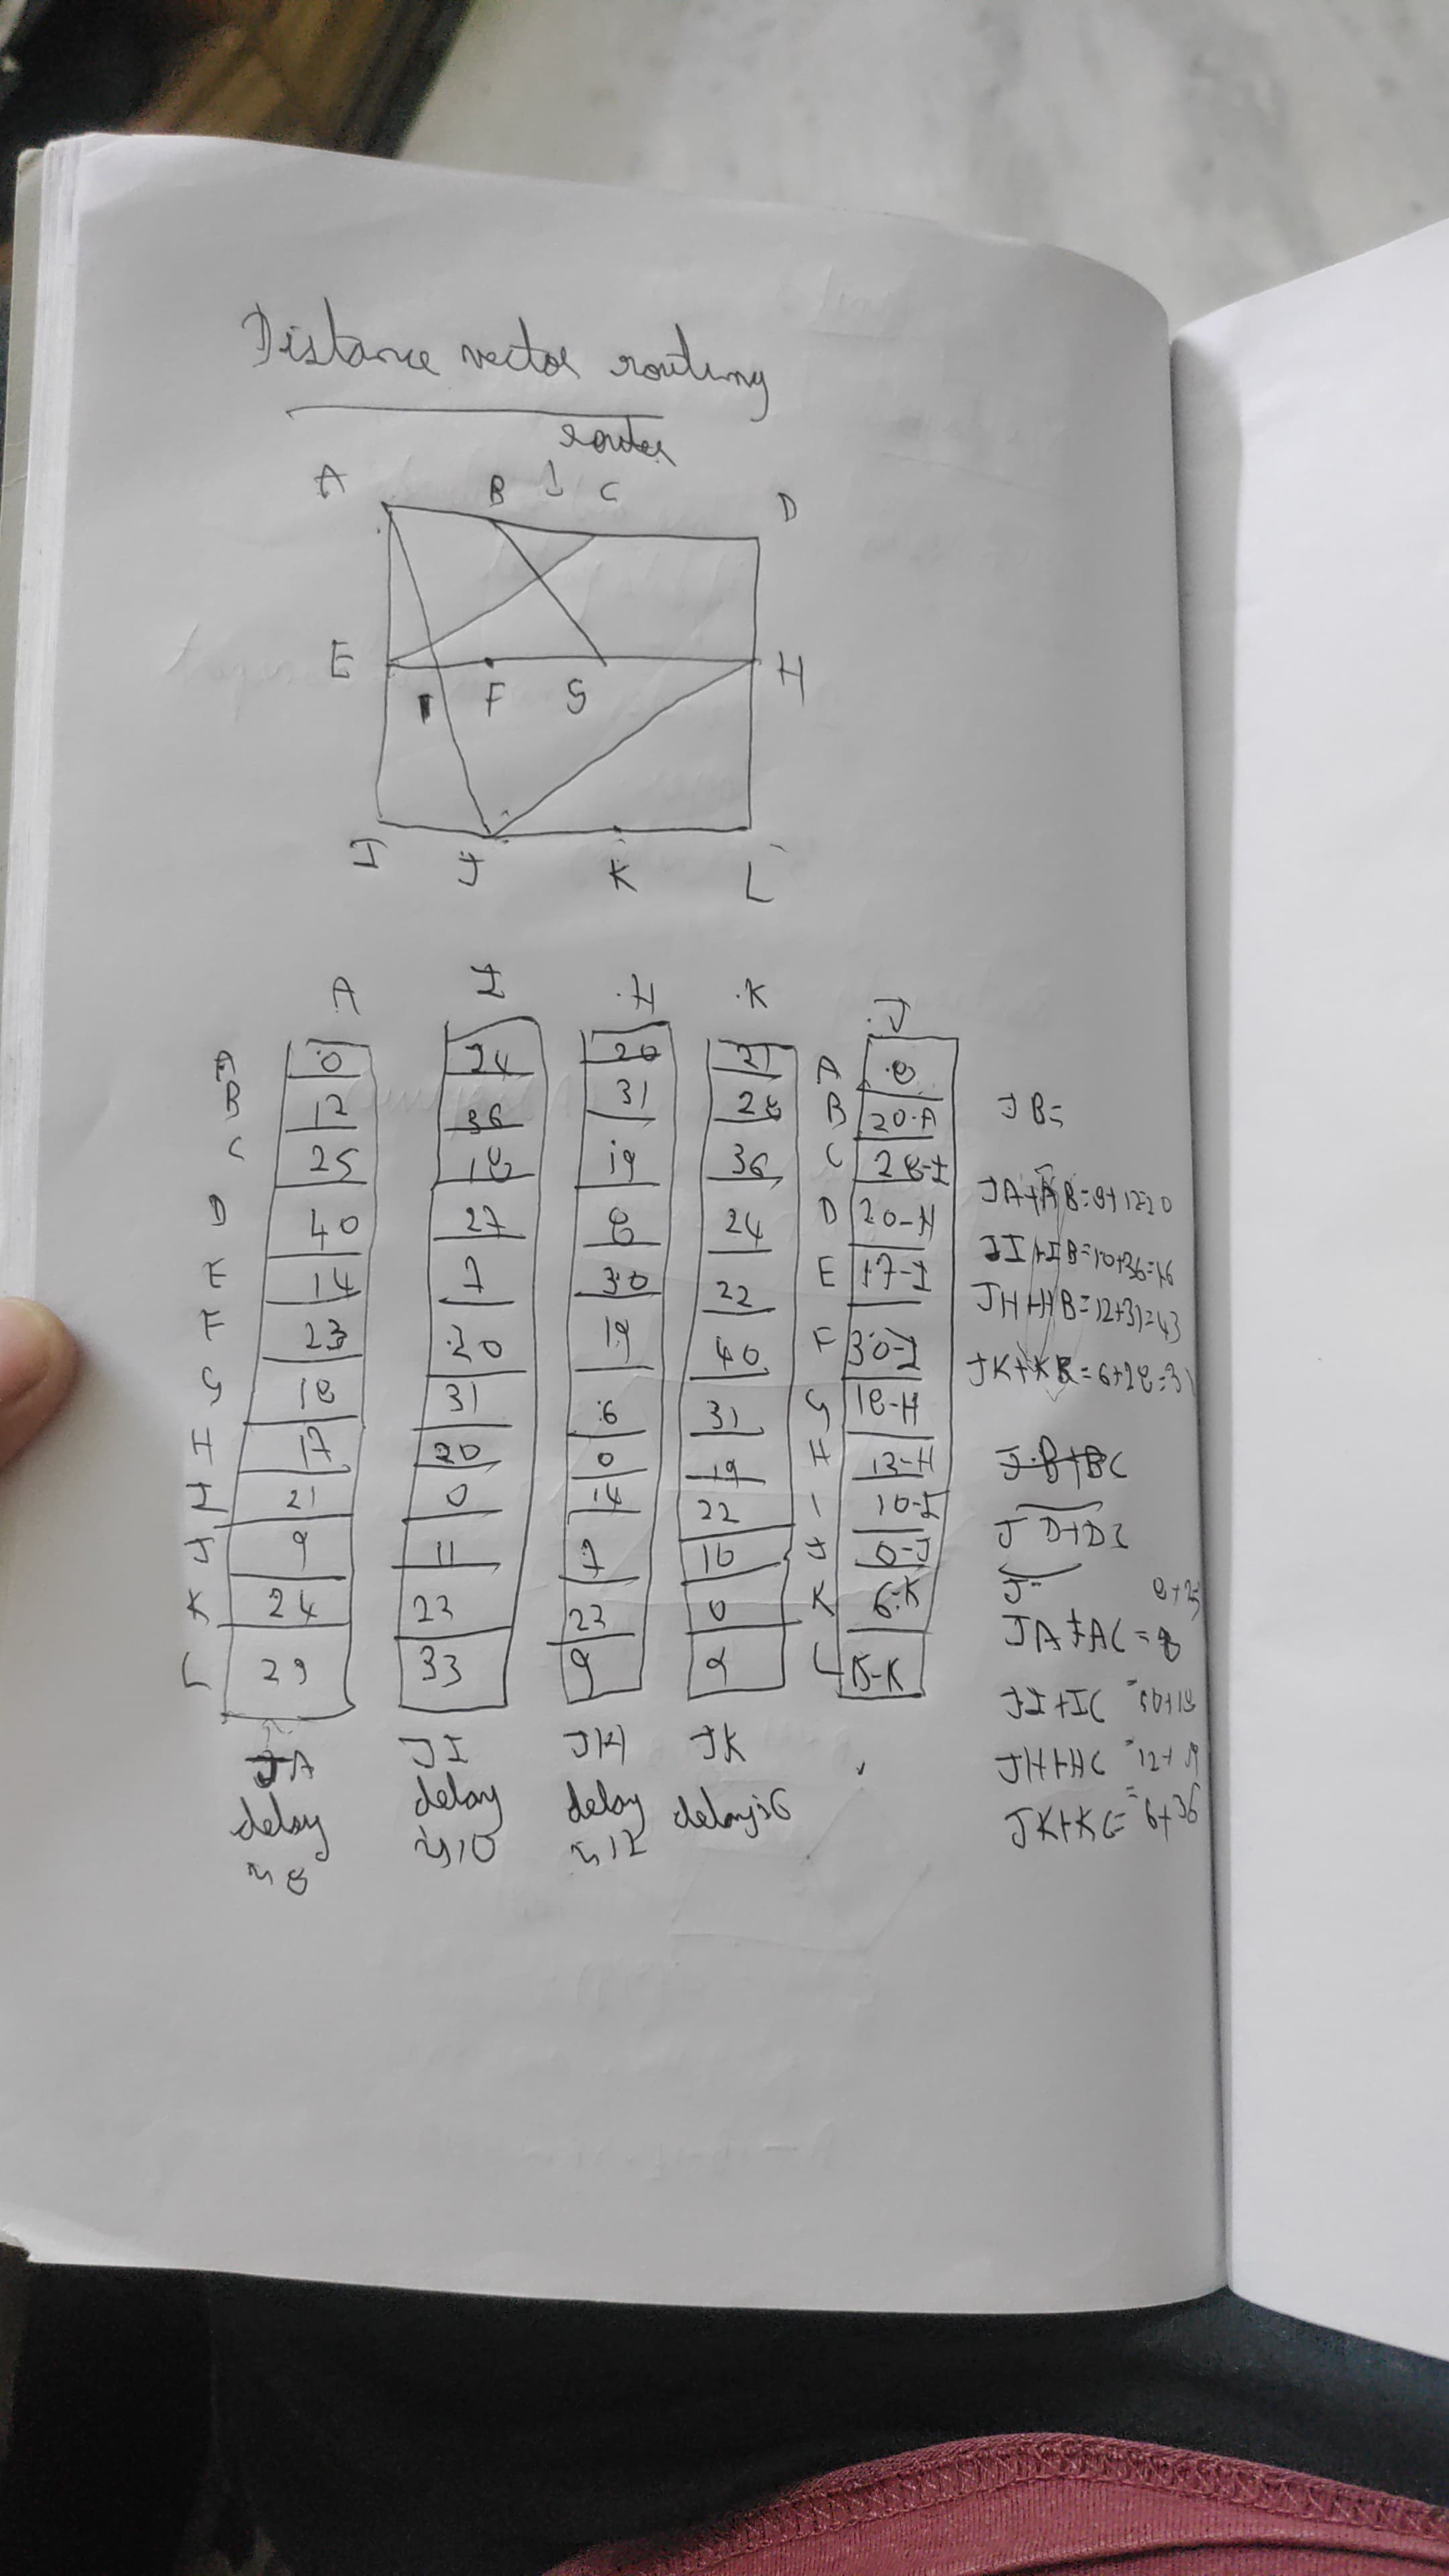 Distance vector routing
router
A B ↓ C D
E F G H
I J K L
A I H K J
A 0 24 20 21 A 8
B 12 36 31 28 B 20-A
C 25 18 19 36 C 28-I
D 40 27 8 24 D 20-H
E 14 7 30 22 E 17-I
F 23 20 19 40 F 30-I
G 18 31 6 31 G 18-H
H 17 20 0 19 H 12-H
I 21 0 14 22 I 10-I
J 9 11 7 10 J 0-J
K 24 22 22 0 K 6-K
L 29 33 9 9 L 15-K
JA JI JH JK
delay delay delay delay is 6
is 8 is 10 is 12
JB=
JA+AB=8+12=20
JI+IB=10+36=46
JH+HB=12+31=43
JK+KB=6+28=3
J B+BC
J D+DC
J-
8+25
JA+AC=8
JI+IC =10+18
JH+HC =12+19
JK+KC= =6+36